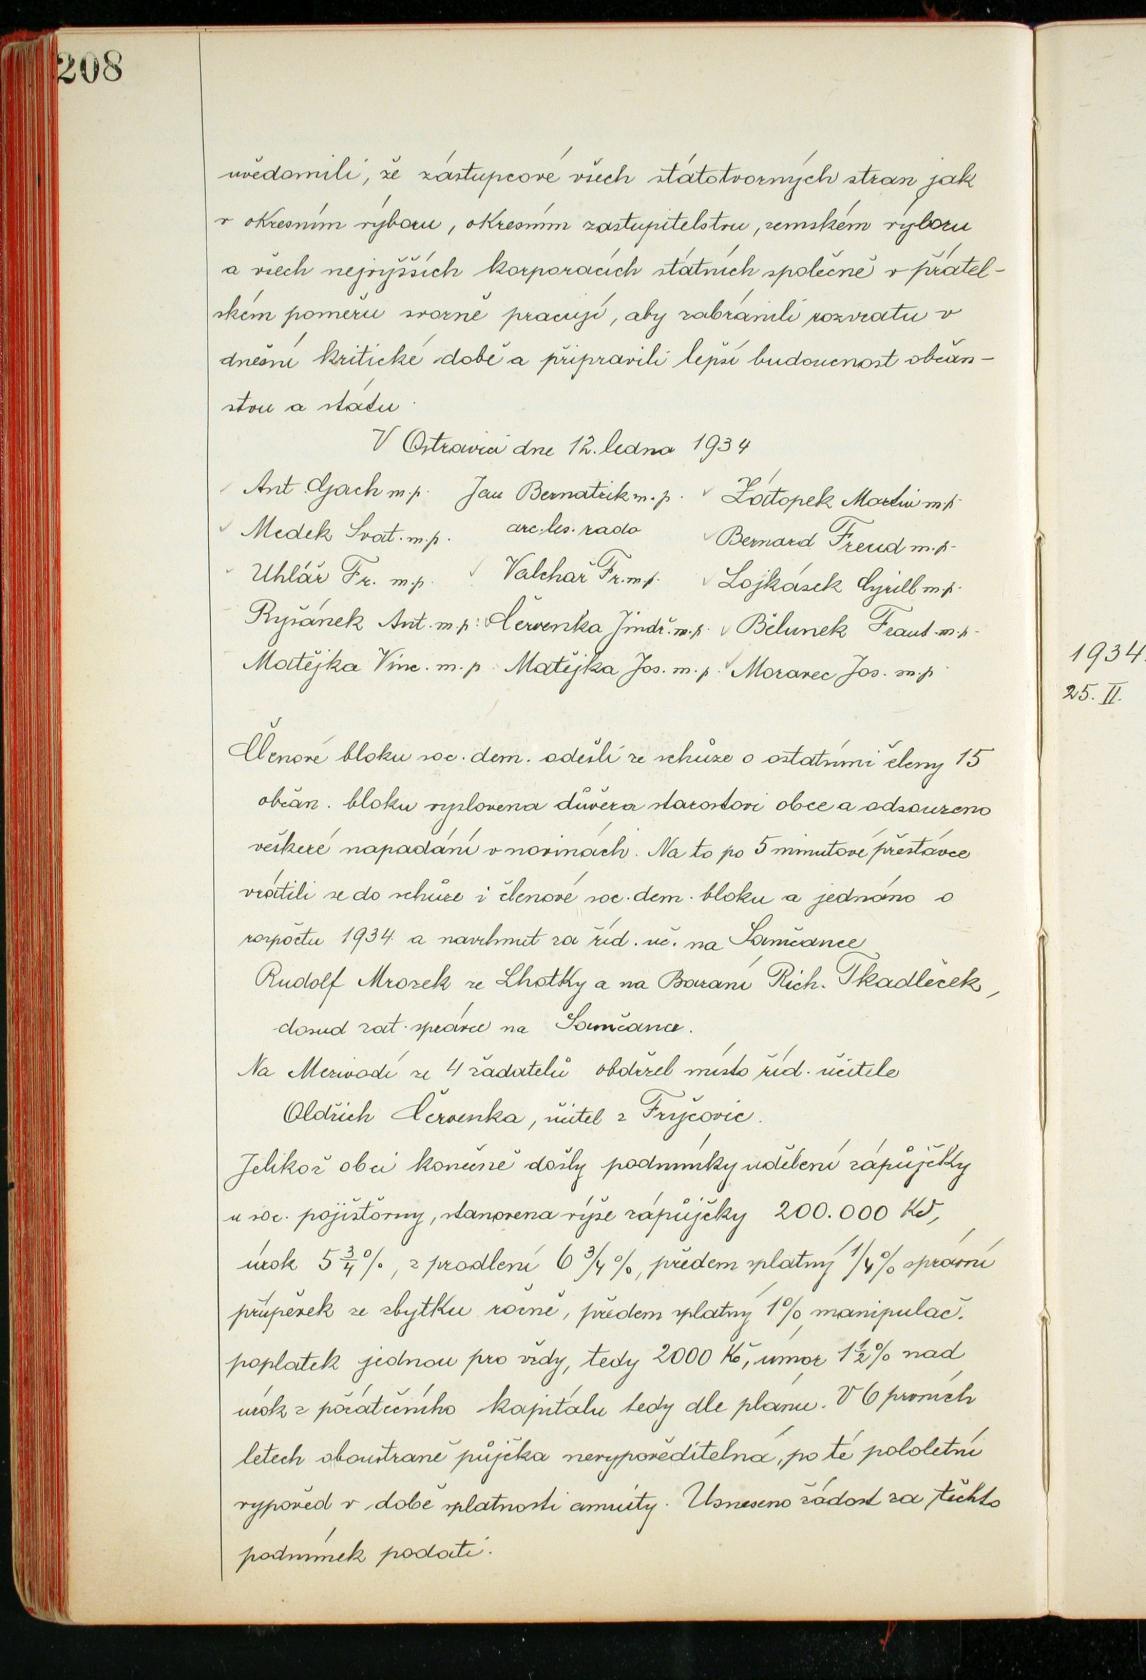 208
uvědomili, že zástupcové všech státotvorných stran jak
v okresním výboru, okresním zastupitelstvu, zemském výboru
a všech nejvyšších korporacích státních společně v přátel-
ském poměru svorně pracují, aby zabránili rozvratu v
dnešní kritické době a připravili lepší budoucnost občan-
stvu a státu.
V Ostravici dne 12. ledna 1934
Ant. Gach m.p. Jan Bernatzik m.p. Zátopek Martin m.p.
Medek Svat. m.p. arc. les. rada Bernard Freud m.p.
Uhlář Fr. m.p. Valchař Fr. m.p. Lojkásek Cyrill m.p.
Ryšánek Ant. m.p. Červenka Jindř. m.p. Bělunek Frant. m.p.
Matějka Vinc. m.p. Matějka Jos. m.p. Moravec Jos. m.p.
Členové bloku soc. dem. odešli ze schůze a ostatními členy 15
občan. bloku vyslovena důvěra starostovi obce a odsouzeno
veškeré napadání v novinách. Na to po 5 minutové přestávce
vrátili se do schůze i členové soc. dem. bloku a jednáno o
rozpočtu 1934 a navrhnut za říd. uč. na Samčance
Rudolf Mrozek ze Lhotky a na Baraní Rich. Tkadleček,
dosud zat. správce na Samčance.
Na Mezivodí ze 4 žadatelů obdržel místo říd. učitele
Oldřich Červenka, učitel z Fryčovic.
Jelikož obci konečně došly podmínky udělení zápůjčky
u soc. pojišťovny, stanovena výše zápůjčky 200.000 Kč,
úrok 5 3/4 %, z prodlení 6 3/4 %, předem splatný 1/4 % správní
příspěvek ze zbytku ročně, předem splatný 1% manipulač.
poplatek jednou pro vždy, tedy 2000 Kč, úmor 1 1/2 % nad
úrok z počátečního kapitálu tedy dle plánu. V 6 prvních
letech oboustraně půjčka nevypověditelná, po té pololetní
výpověď v době splatnosti anuity. Usneseno žádost za těchto
podmínek podati.
1934.
25. II.